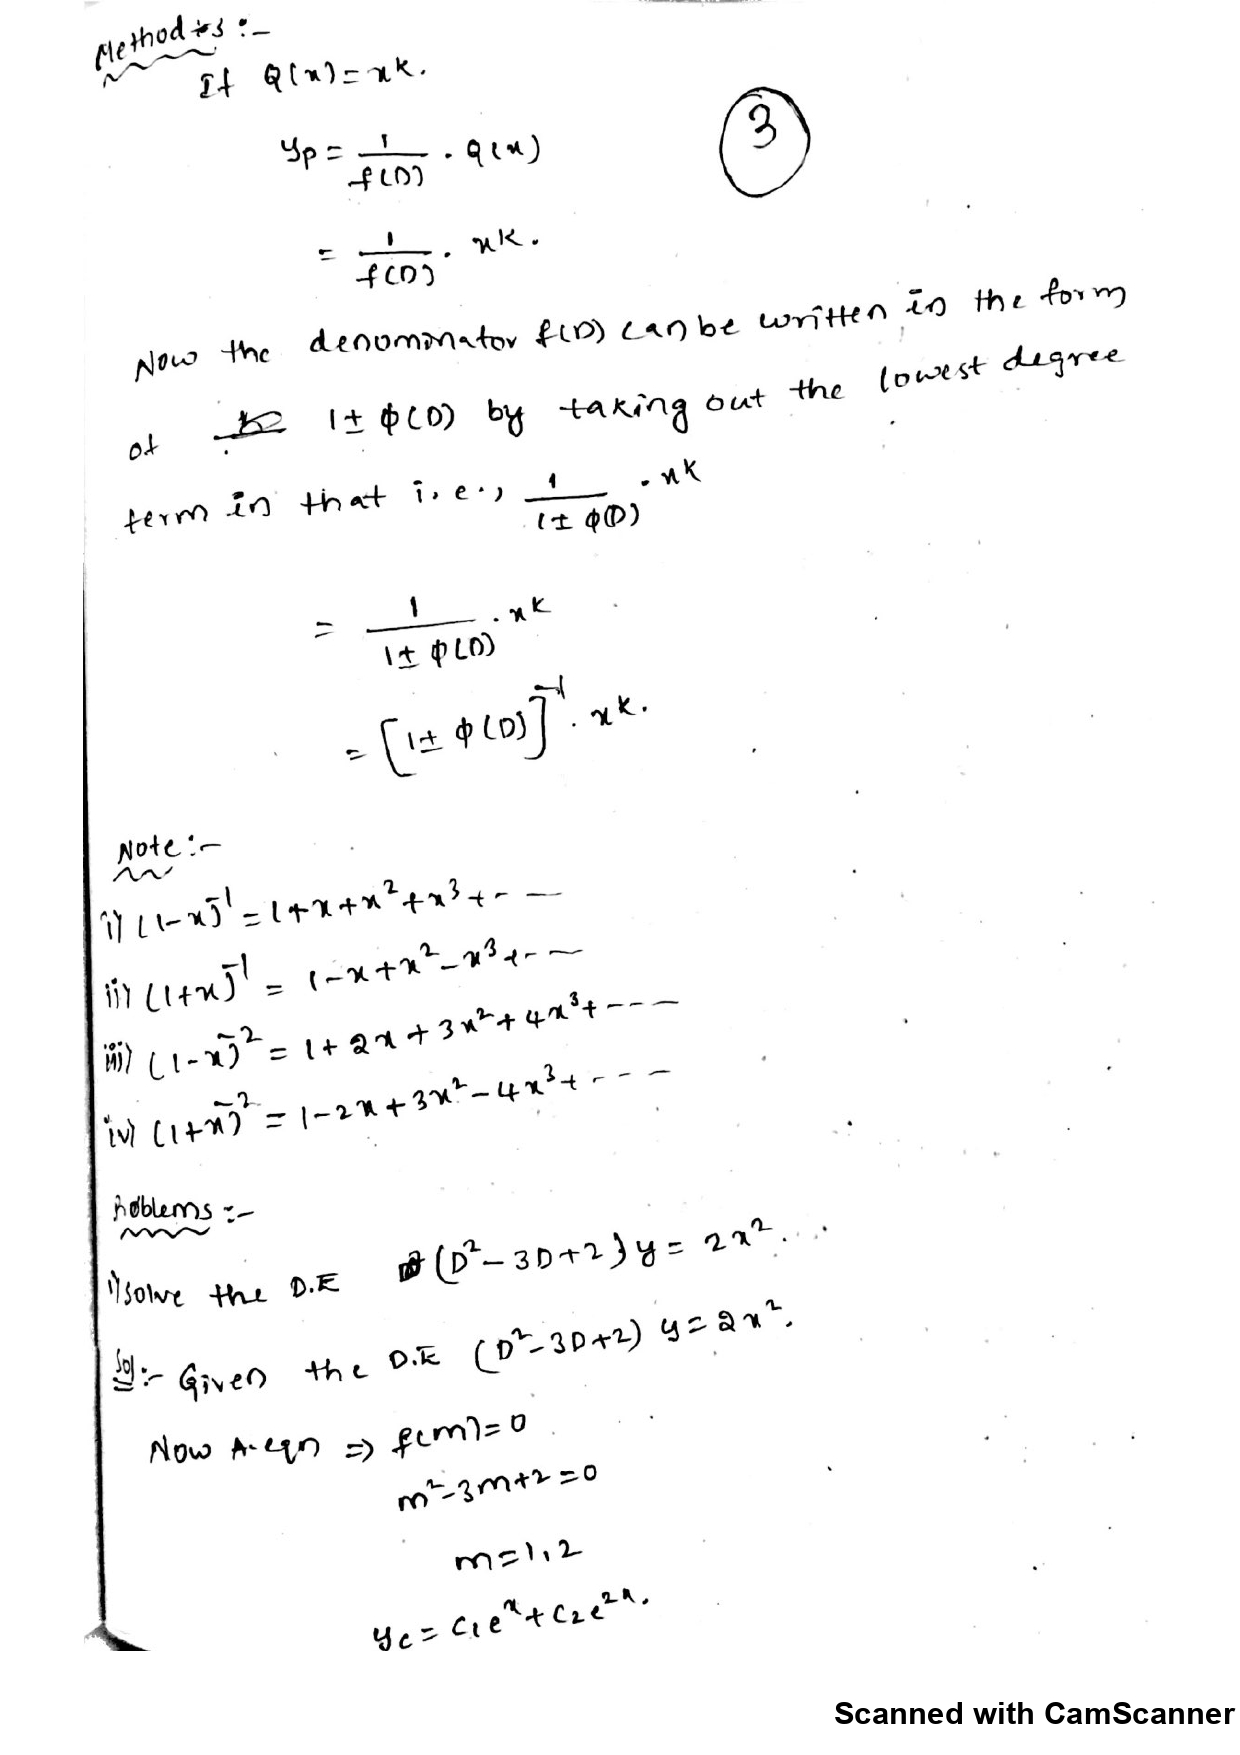 Method-3 :-
If Q(x) = x^k.
3
y_p = 1/f(D) . Q(x)
= 1/f(D) . x^k.
Now the denominator f(D) can be written in the form
of 1 ± φ(D) by taking out the lowest degree
term in that i.e., 1/(1 ± φ(D)) . x^k
= 1/(1 ± φ(D)) . x^k
= [1 ± φ(D)]^-1 . x^k.
Note :-
i) (1-x)^-1 = 1+x+x^2+x^3+- —
ii) (1+x)^-1 = 1-x+x^2-x^3+- —
iii) (1-x)^-2 = 1+2x+3x^2+4x^3+----
iv) (1+x)^-2 = 1-2x+3x^2-4x^3+----
Problems :-
1) Solve the D.E (D^2-3D+2)y = 2x^2.
Sol :- Given the D.E (D^2-3D+2) y = 2x^2.
Now A.eqn => f(m)=0
m^2-3m+2=0
m=1,2
y_c = c_1e^x+c_2e^2x.
Scanned with CamScanner